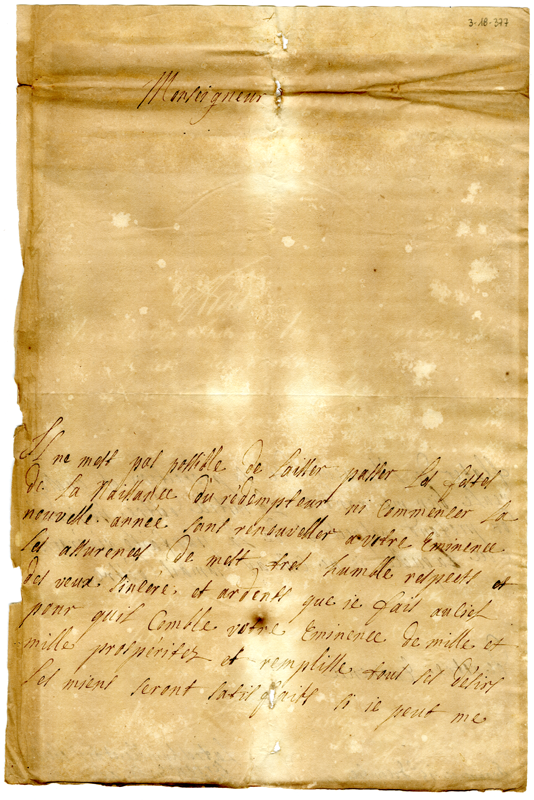 3-18-377
Monseigneur
Il ne mest pas possible de laisser passer les festes
de la Naissance du rédempteur ni commencer la
nouvelle année sans renouveller a votre Eminence
les assurences de mest tres humble respects et
des veux sincere et ardents que ie fais au ciel
pour quil Comble votre Eminence de mille et
mille prospéritez et remplisse tout ses désirs
les miens seront satisfaits si ie peut me